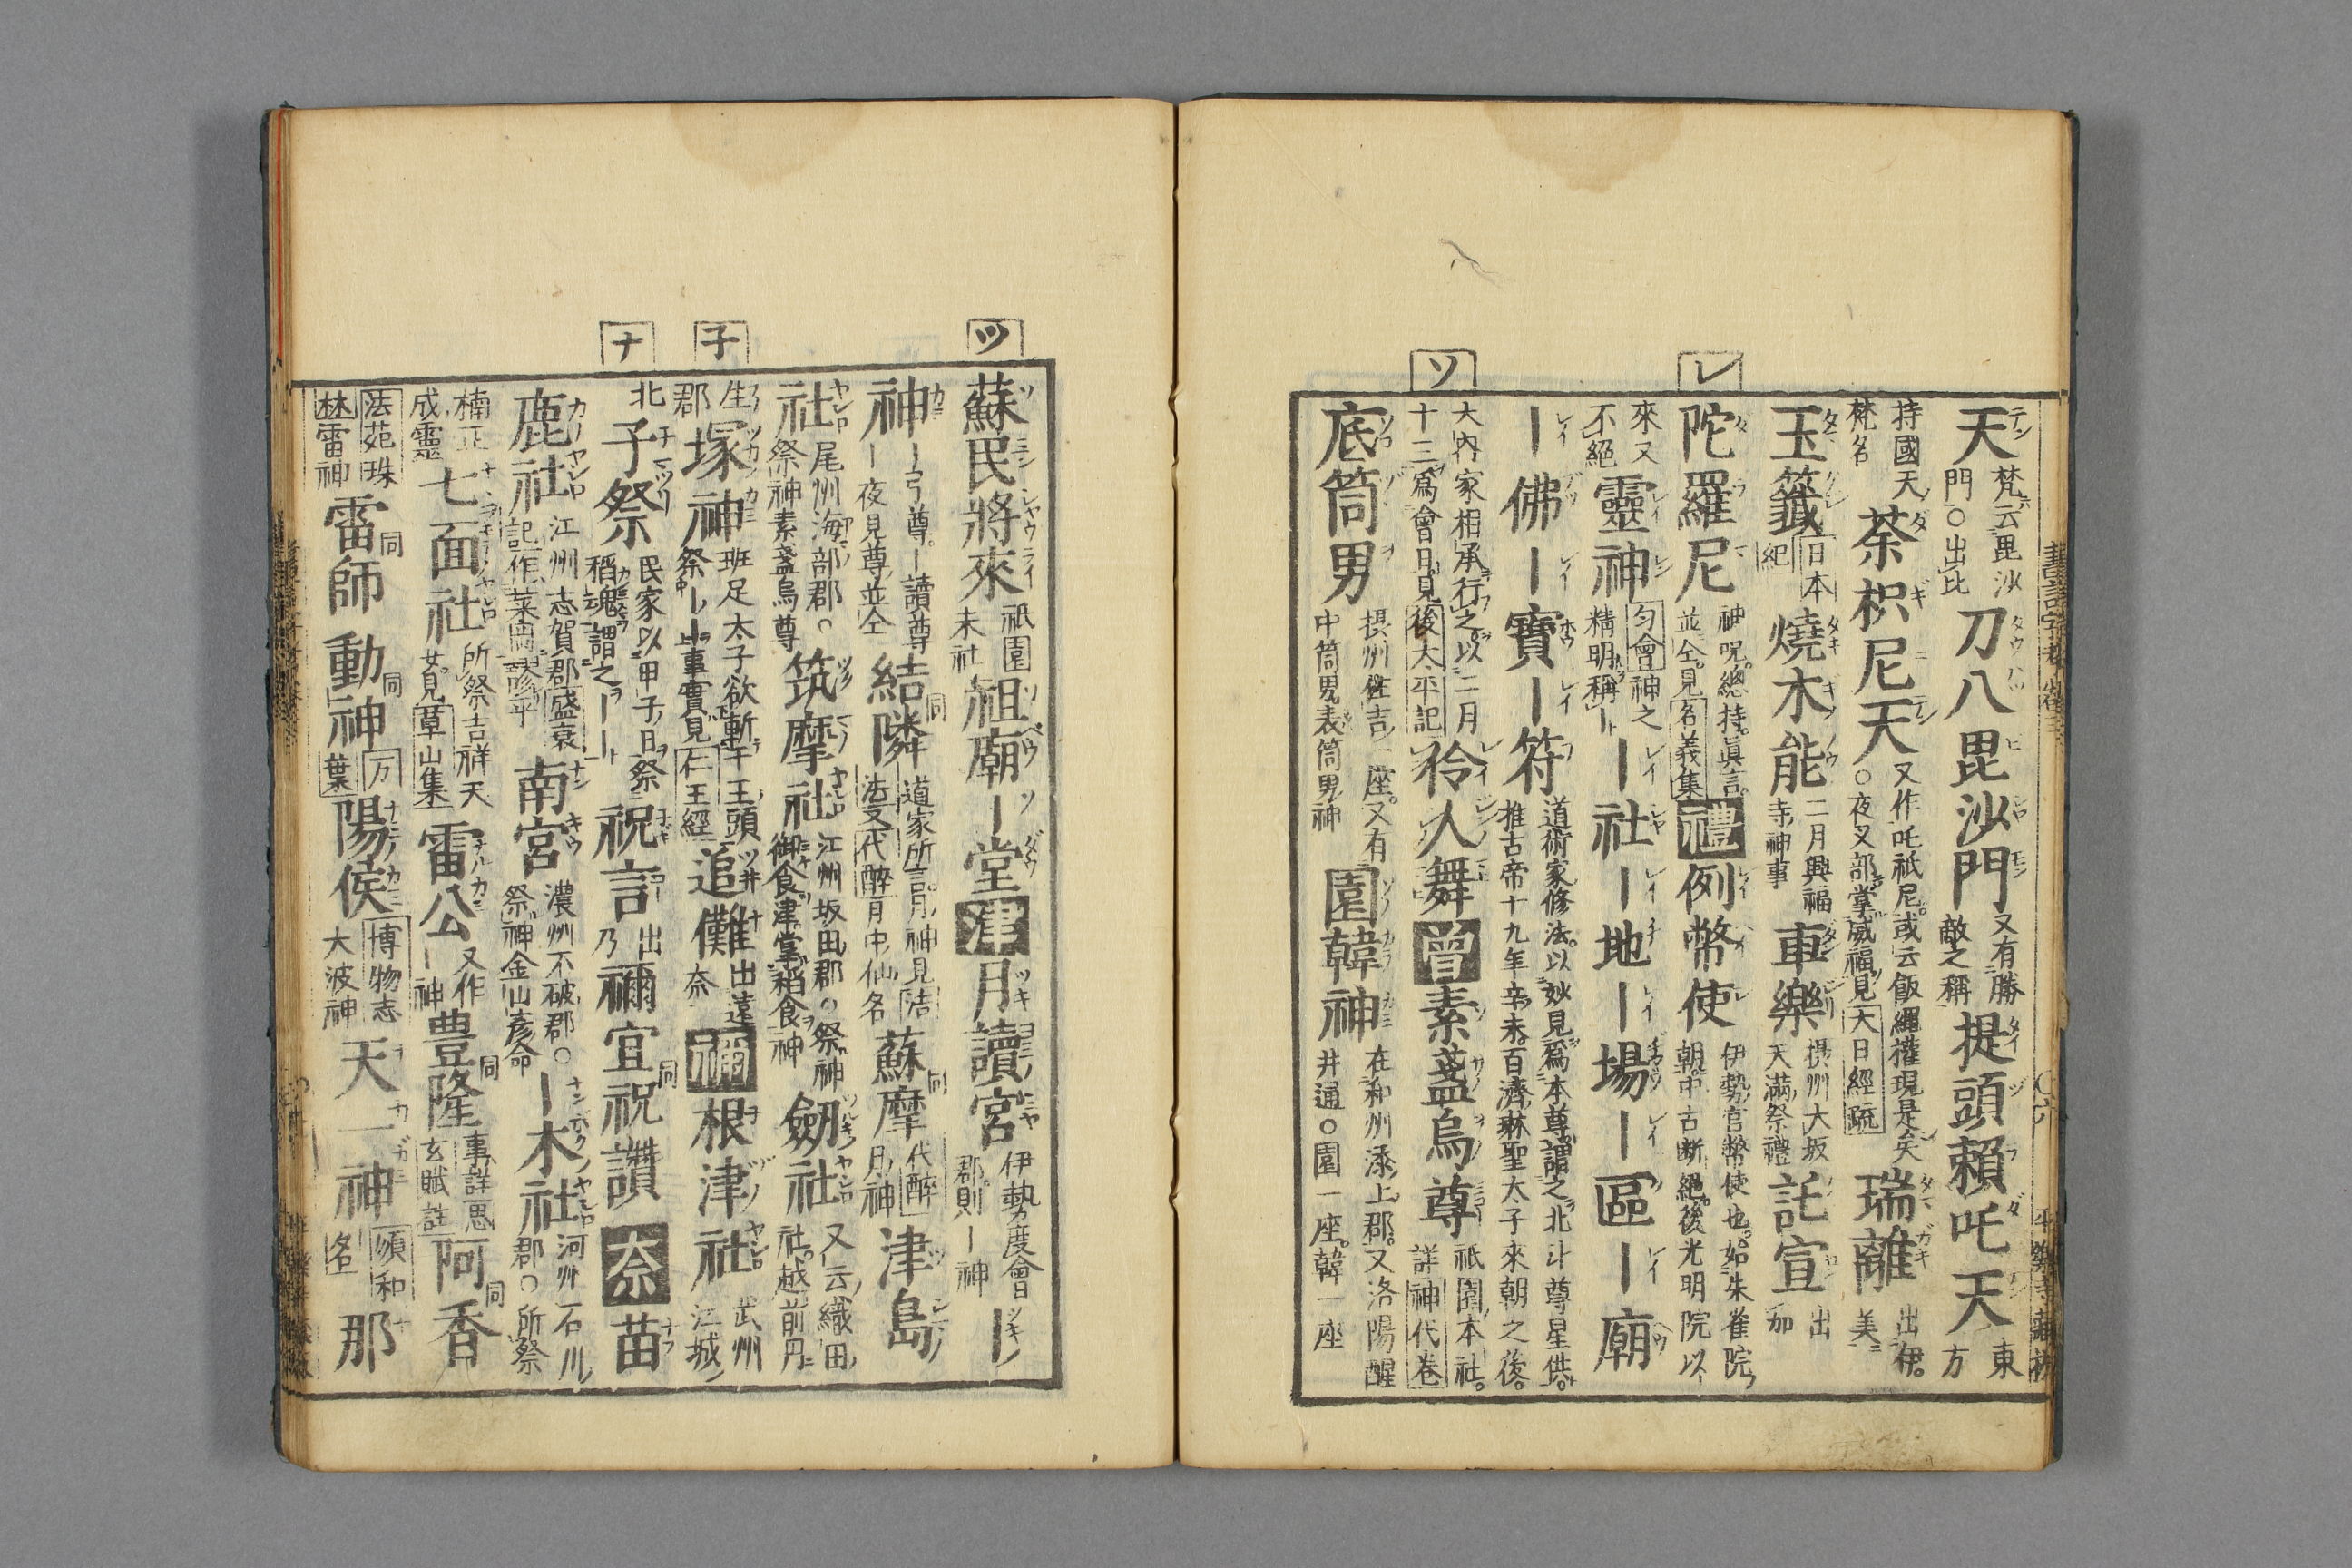 レ
ソ
天 梵云毘沙門○出比 刀八毘沙門 又有勝敵之稱 提頭賴吒天 東方
持國天梵名 荼枳尼天 又作吒祇尼。或云飯繩權現是矣○夜叉部掌威福見大日經疏 瑞離 出伊。美
玉籤 日本紀 燒木能 二月興福寺神事 車樂 摂州大坂天滿祭禮 託宣 出加
陀羅尼 神呪。總持。眞言。並仝。見名義集 禮 例幣使 伊勢官幣使也。始朱雀院朝。中古断絕。後光明院以
來又不絕 靈神 匂會神之精明稱 ー社ー地ー場ー區ー廟
ー佛ー寶ー符 道術家修法。以妙見爲本尊。謂之北斗尊星供。推古帝十九年辛未。百濟琳聖太子來朝之後。
大內家相承行之以二月十三爲會日見後太平記 伶人舞 曾 素盞烏尊 祇園本社。詳神代卷
底筒男 摂州住吉一座。又有中筒男表筒男神 園韓神 在和州添上郡。又洛陽醒井通○園一座。韓一座
ツ
子
ナ
蘇民將來 祇園末社 祖廟ー堂 津 月讀宮 伊勢度會郡。則ー神 ー
神 ー弓尊。ー讀尊ー夜見尊並仝 結隣 同 道家所言。月神見法苑代醉月中仙名 蘇摩 同 代醉月神 津島
社 尾州海部郡。祭神素盞烏尊 筑摩社 江州坂田郡。祭神御食津掌稻食神 劒社 又云織田社。越前丹
生郡 塚神 班足太子欲斬千王頭祭ーー事實見仁王經 追儺 出遠奈 禰 根津社 武州江城
北 子祭 民家以甲子日祭稻魂謂之ーー 祝言 出乃 禰宜祝 同 讚 奈 苗
鹿社 江州志賀郡盛衰記作菜岡謬乎 南宮 濃州不破郡○祭神金山彦命 ー木社 河州石川郡○所祭
楠正成靈 七面社 所祭吉祥天女。見草山集 雷公 又作ー神 豊隆 同 事詳思玄賦註 阿香 同
法苑珠林雷神 雷師 同 動神 同 万葉 陽侯 博物志大波神 天一神 順和名 那